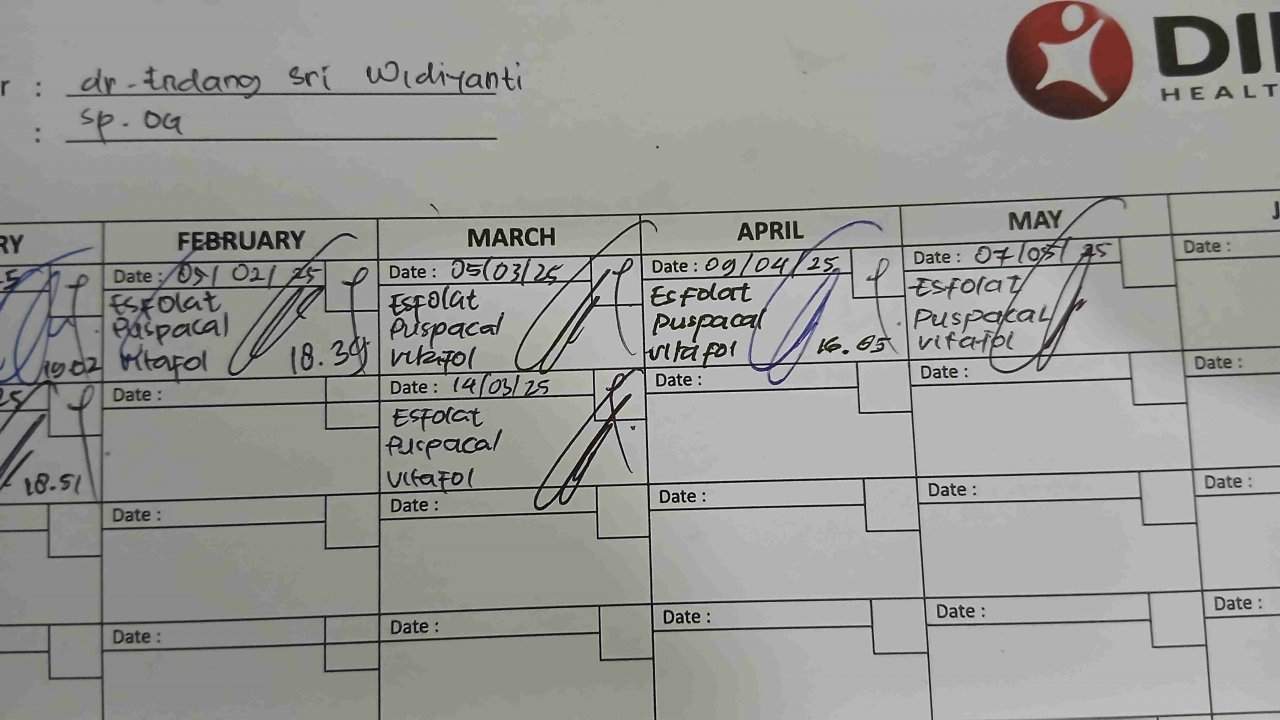 r : dr. Endang Sri Widiyanti
: Sp. OG
DI
HEALT
RY FEBRUARY MARCH APRIL MAY J
Date : 05/02/25 Date : 05/03/25 Date : 09/04/25 Date : 07/05/25 Date :
Esfolat Esfolat Esfolat Esfolat
Puspacal Puspacal Puspacal Puspacal
19.02 Vitafol 18.39 Vitafol Vitafol 16.05 Vitafol
Date : Date : 14/03/25 Date : Date : Date :
Esfolat
Puspacal
18.51 Vitafol
Date : Date : Date : Date : Date :
Date : Date : Date : Date : Date :